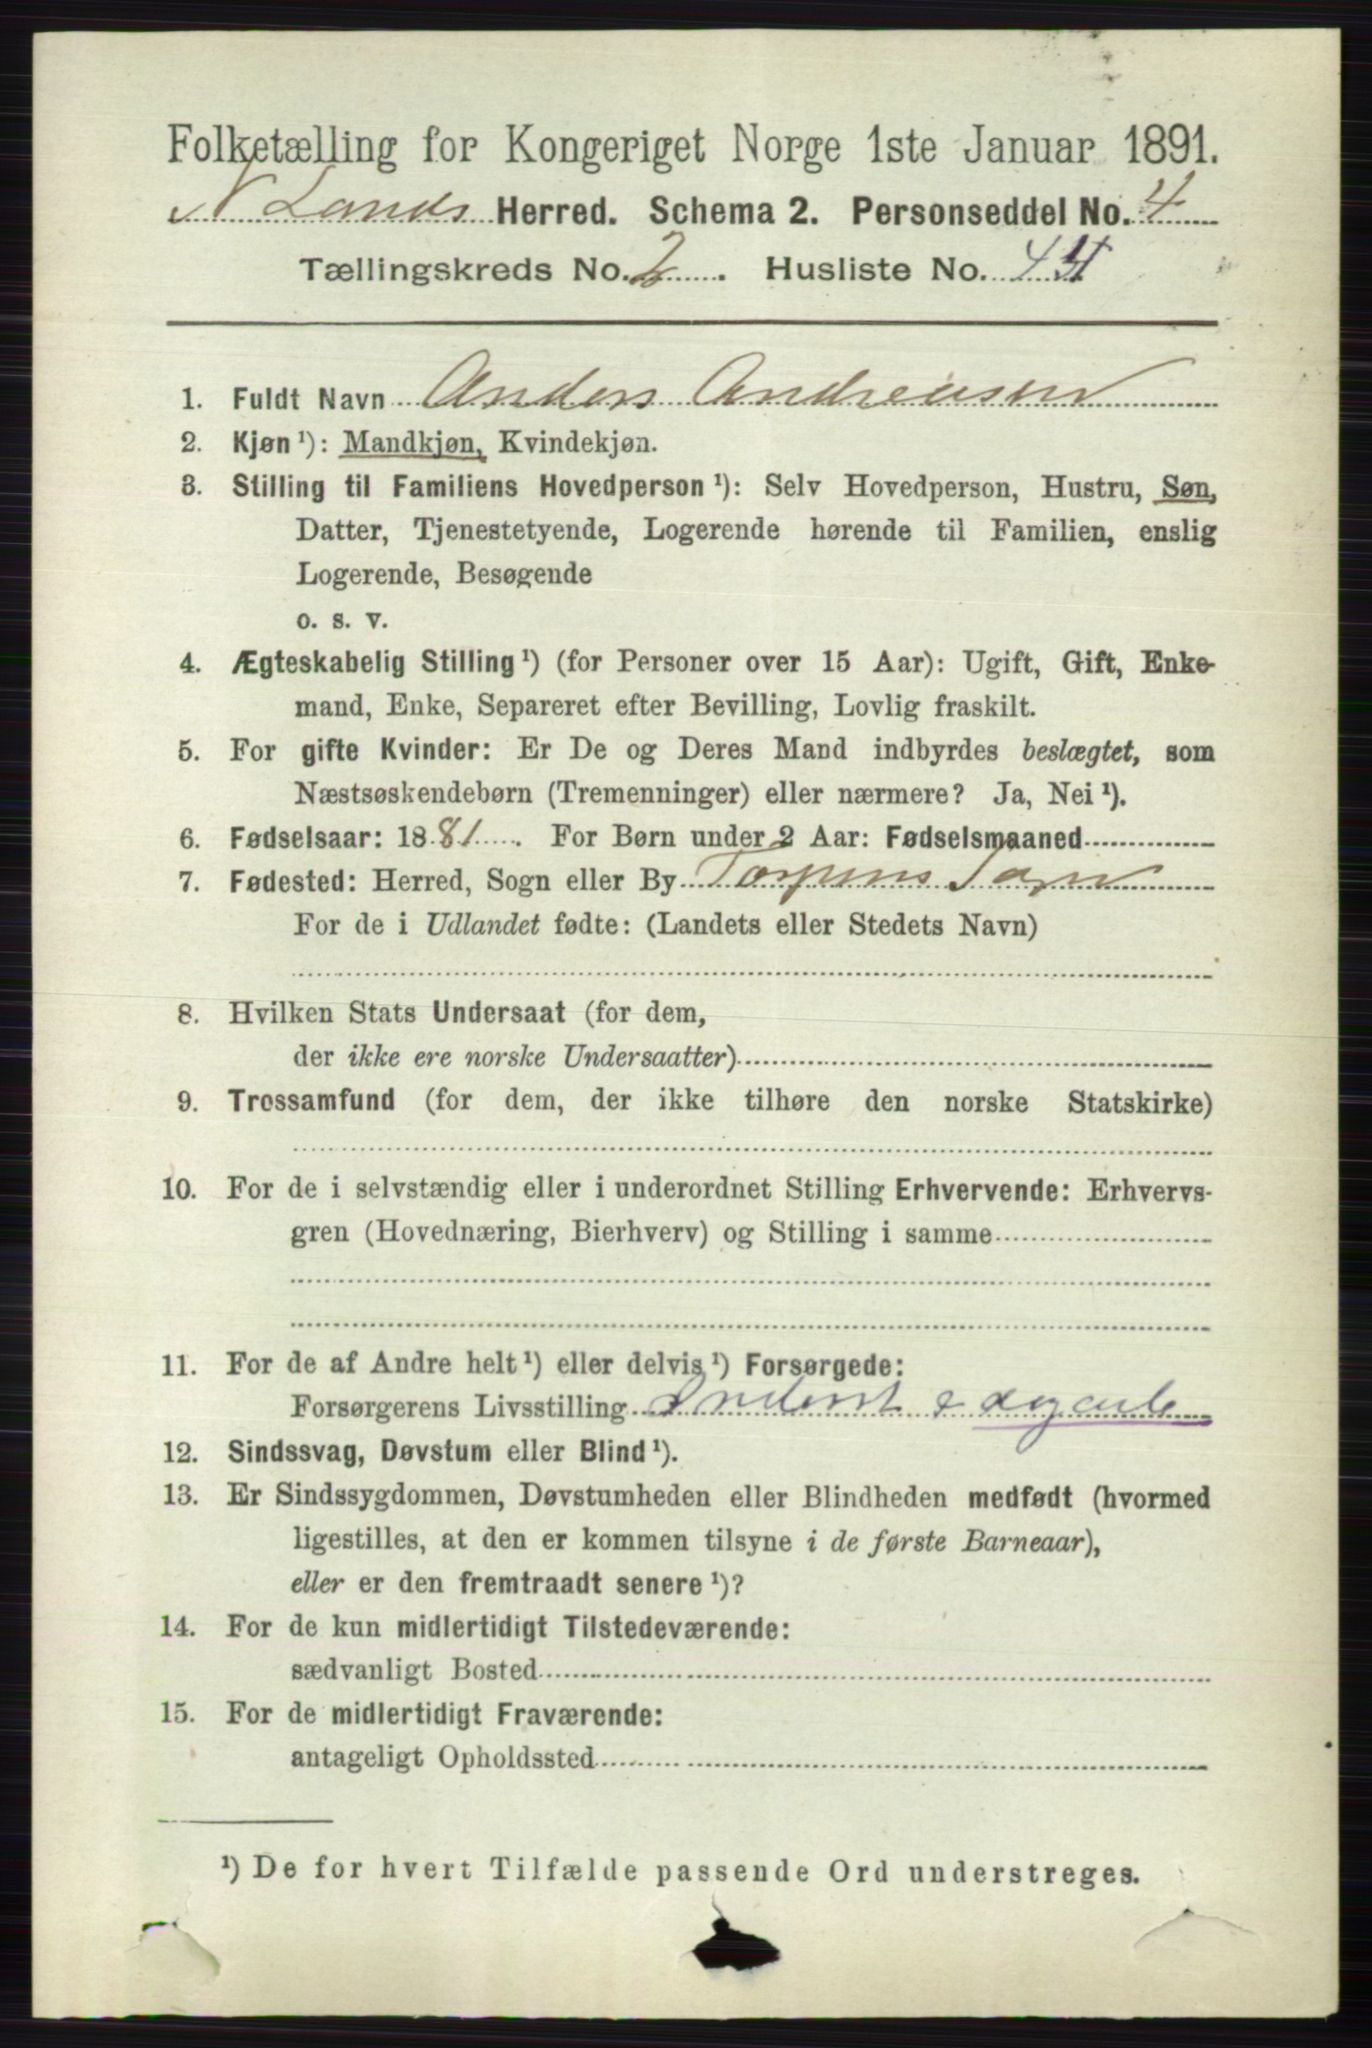 Folketælling for Kongeriget Norge 1ste Januar 1891.
N Lands Herred. Schema 2. Personseddel No. 4
Tællingskreds No. 2. Husliste No. 44
1. Fuldt Navn Anders Andreasen
2. Kjøn ¹): Mandkjøn, Kvindekjøn.
3. Stilling til Familiens Hovedperson ¹): Selv Hovedperson, Hustru, Søn,
Datter, Tjenestetyende, Logerende hørende til Familien, enslig
Logerende, Besøgende
o. s. v.
4. Ægteskabelig Stilling ¹) (for Personer over 15 Aar): Ugift, Gift, Enke-
mand, Enke, Separeret efter Bevilling, Lovlig fraskilt.
5. For gifte Kvinder: Er De og Deres Mand indbyrdes beslægtet, som
Næstsøskendebørn (Tremenninger) eller nærmere? Ja, Nei ¹).
6. Fødselsaar: 1881. For Børn under 2 Aar: Fødselsmaaned
7. Fødested: Herred, Sogn eller By Torpens Sogn
For de i Udlandet fødte: (Landets eller Stedets Navn)
8. Hvilken Stats Undersaat (for dem,
der ikke ere norske Undersaatter)
9. Trossamfund (for dem, der ikke tilhøre den norske Statskirke)
10. For de i selvstændig eller i underordnet Stilling Erhvervende: Erhvervs-
gren (Hovednæring, Bierhverv) og Stilling i samme
11. For de af Andre helt ¹) eller delvis ¹) Forsørgede:
Forsørgerens Livsstilling Inderst
12. Sindssvag, Døvstum eller Blind ¹).
13. Er Sindssygdommen, Døvstumheden eller Blindheden medfødt (hvormed
ligestilles, at den er kommen tilsyne i de første Barneaar),
eller er den fremtraadt senere ¹)?
14. For de kun midlertidigt Tilstedeværende:
sædvanligt Bosted
15. For de midlertidigt Fraværende:
antageligt Opholdssted
¹) De for hvert Tilfælde passende Ord understreges.